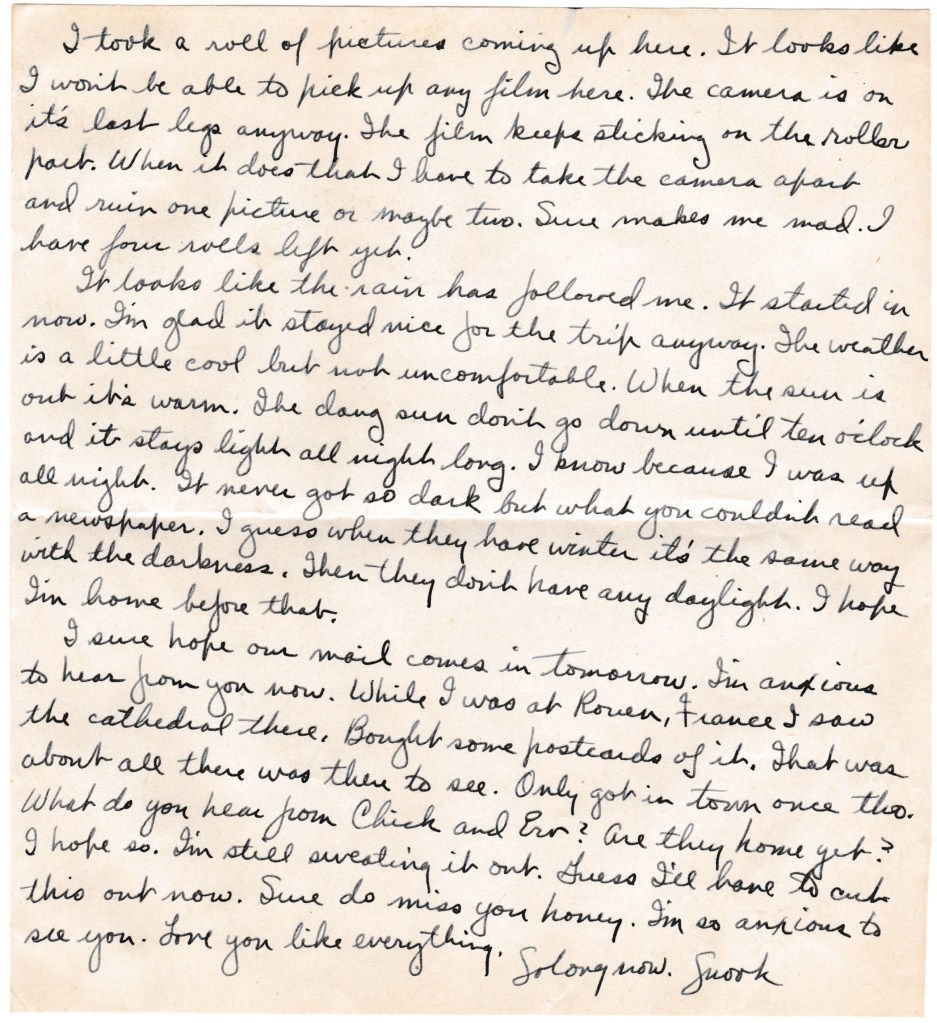 I took a roll of pictures coming up here. It looks like
I won't be able to pick up any film here. The camera is on
it's last legs anyway. The film keeps sticking on the roller
part. When it does that I have to take the camera apart
and ruin one picture or maybe two. Sure makes me mad. I
have four rolls left yet.
It looks like the rain has followed me. It started in
now. I'm glad it stayed nice for the trip anyway. The weather
is a little cool but not uncomfortable. When the sun is
out it's warm. The dang sun don't go down until ten o'clock
and it stays light all night long. I know because I was up
all night. It never got so dark but what you couldn't read
a newspaper. I guess when they have winter it's the same way
with the darkness. Then they don't have any daylight. I hope
I'm home before that.
I sure hope our mail comes in tomorrow. I'm anxious
to hear from you now. While I was at Rouen, France I saw
the cathedral there. Bought some postcards of it. That was
about all there was there to see. Only got in town once tho.
What do you hear from Chick and Erv? Are they home yet?
I hope so. I'm still sweating it out. Guess I'll have to cut
this out now. Sure do miss you honey. I'm so anxious to
see you. Love you like everything.
So long now. Snook